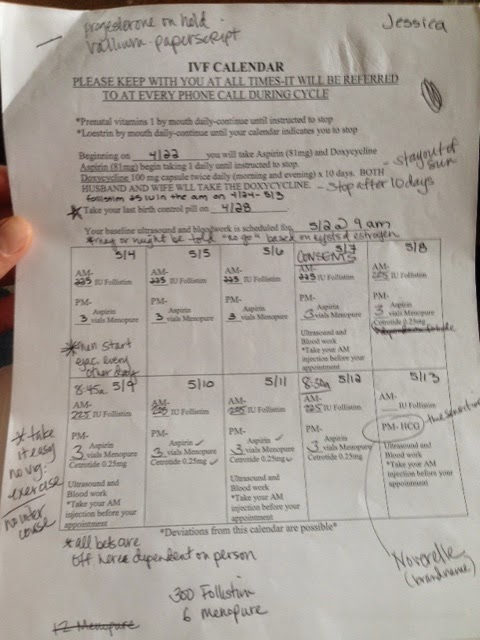 progesterone on hold
vallium - paperscript
Jessica
IVF CALENDAR
PLEASE KEEP WITH YOU AT ALL TIMES-IT WILL BE REFERRED
TO AT EVERY PHONE CALL DURING CYCLE
*Prenatal vitamins 1 by mouth daily-continue until instructed to stop
*Loestrin by mouth daily-continue until your calendar indicates you to stop
Beginning on 4/22 you will take Aspirin (81mg) and Doxycycline
Aspirin (81mg) begin taking 1 daily until instructed to stop.
Doxycycline 100 mg capsule twice daily (morning and evening) x 10 days. BOTH
HUSBAND AND WIFE WLL TAKE THE DOXYCYCLINE.
- stay out of sun
- Stop after 10 days
follistim 25 iu in the am on 4/24 - 5/3
*Take your last birth control pill on 4/28
Your baseline ultrasound and bloodwork is scheduled for 5/2 @ 9 am
*may or might be told "no go" based on cysts & estrogen
5/4
AM-
225 IU Follistim
PM-
Aspirin
3 vials Menopure
*Man start
ejac every
other day
5/5
AM-
225 IU Follistim
PM-
Aspirin
3 vials Menopure
5/6
AM-
225 IU Follistim
PM-
Aspirin
3 vials Menopure
5/7
CONSENTS
AM-
225 IU Follistim
PM-
Aspirin
3 vials Menopure
Ultrasound and
Blood work
*Take your AM
injection before your
appointment
5/8
AM-
225 IU Follistim
PM-
Aspirin
3 vials Menopure
Cetrotide 0.25mg
8:45a 5/9
AM-
225 IU Follistim
PM-
Aspirin
3 vials Menopure
Cetrotide 0.25mg
Ultrasound and
Blood work
*Take your AM
injection before your
appointment
5/10
AM-
225 IU Follistim
PM-
Aspirin
3 vials Menopure
Cetrotide 0.25mg
5/11
AM-
225 IU Follistim
PM-
Aspirin
3 vials Menopure
Cetrotide 0.25mg
Ultrasound and
Blood work
*Take your AM
injection before your
appointment
8:30a 5/12
AM-
225 IU Follistim
PM-
Aspirin
3 vials Menopure
Cetrotide 0.25mg
5/13
AM-
IU Follistim
PM- HCG
Ultrasound and
Blood work
*Take your AM
injection before your
appointment
* take
it easy
no vig.
exercise
no inter
course
*Deviations from this calendar are possible*
*all bets are
off here dependent on person
Novarelle
(brand name)
300 Follistim
6 menopure
12 Menopure